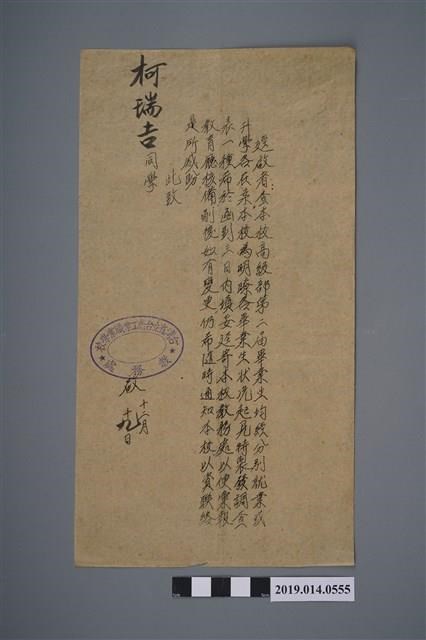 逕啟者：查本校高級部第二屆畢業生均經分別就業或
升學各在案本校為明瞭各畢業生狀況起見特製發調查
表一種希於函到三日內填妥逕寄本校教務處以便彙報
教育廳核備嗣後如有變更仍希隨時通知本校以資聯絡
是所感盼
此致
柯瑞吉同學
教務處
啟
十二月
十九日
2019.014.0555